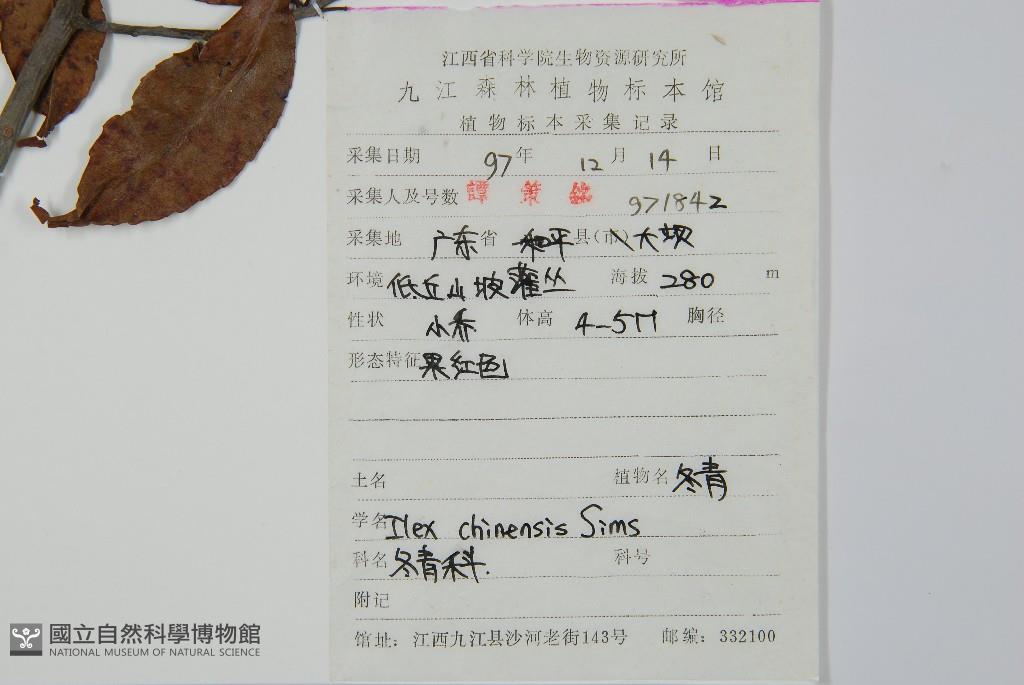 江西省科学院生物资源研究所
九江森林植物标本馆
植物标本采集记录
采集日期 97年 12月 14日
采集人及号数 譚策銘 971842
采集地 广东省 和平县(市)大坝
环境 低丘山坡灌丛 海拔 280 m
性状 小乔 体高 4-5M 胸径
形态特征 果红色
土名 植物名 冬青
学名 Ilex chinensis Sims
科名 冬青科. 科号
附记
馆址: 江西九江县沙河老街143号 邮编: 332100
國立自然科學博物館
NATIONAL MUSEUM OF NATURAL SCIENCE